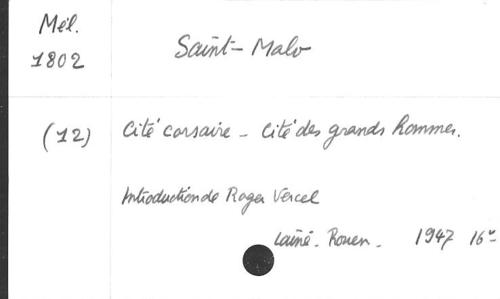 Mél.
1802
Saint-Malo
(12)
Cité corsaire - Cité des grands hommes.
Introduction de Roger Vercel
Lainé. Rouen. 1947 16º